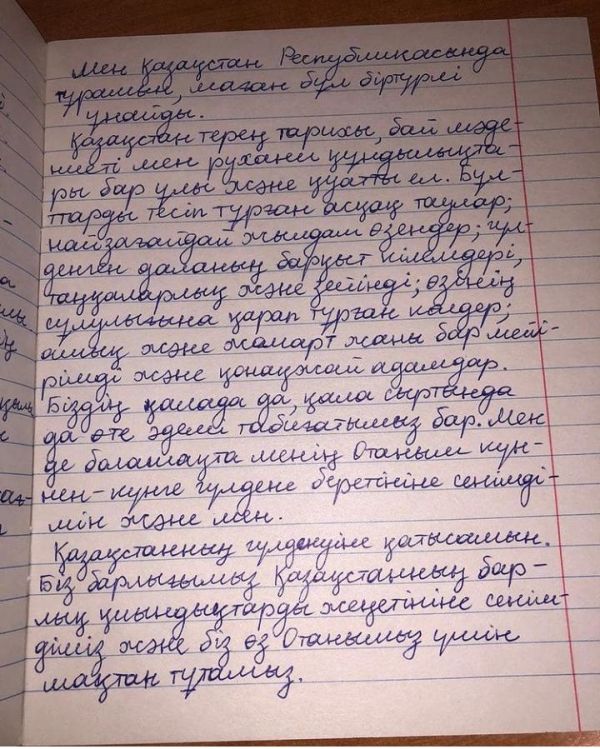 Мен Қазақстан Республикасында
тұрамын, маған бұл біртүрлі
ұнайды.
Қазақстан терең тарихы, бай мәде-
ниеті мен рухани құндылықта-
ры бар ұлы және қуатты ел. Бұл-
ттарды тесіп тұрған асқақ таулар;
найзағайдай жылдам өзендер; гүл-
денген даланың барқыт кілемдері,
таңқаларлық және зейінді; өзінің
сұлулығына қарап тұрған көлдер;
ашық және жомарт жаны бар мейі-
рімді және қонақжай адамдар.
Біздің қалада да, қала сыртында
да өте әдемі табиғатымыз бар. Мен
де болашақта менің Отаным күн-
нен-күнге гүлдене беретініне сенімді-
мін және мен.
Қазақстанның гүлденуіне қатысамын.
Біз барлығымыз Қазақстанның бар-
лық қиындықтарды жеңетініне сенім-
діміз және біз өз Отанымыз үшін
мақтан тұтамыз.